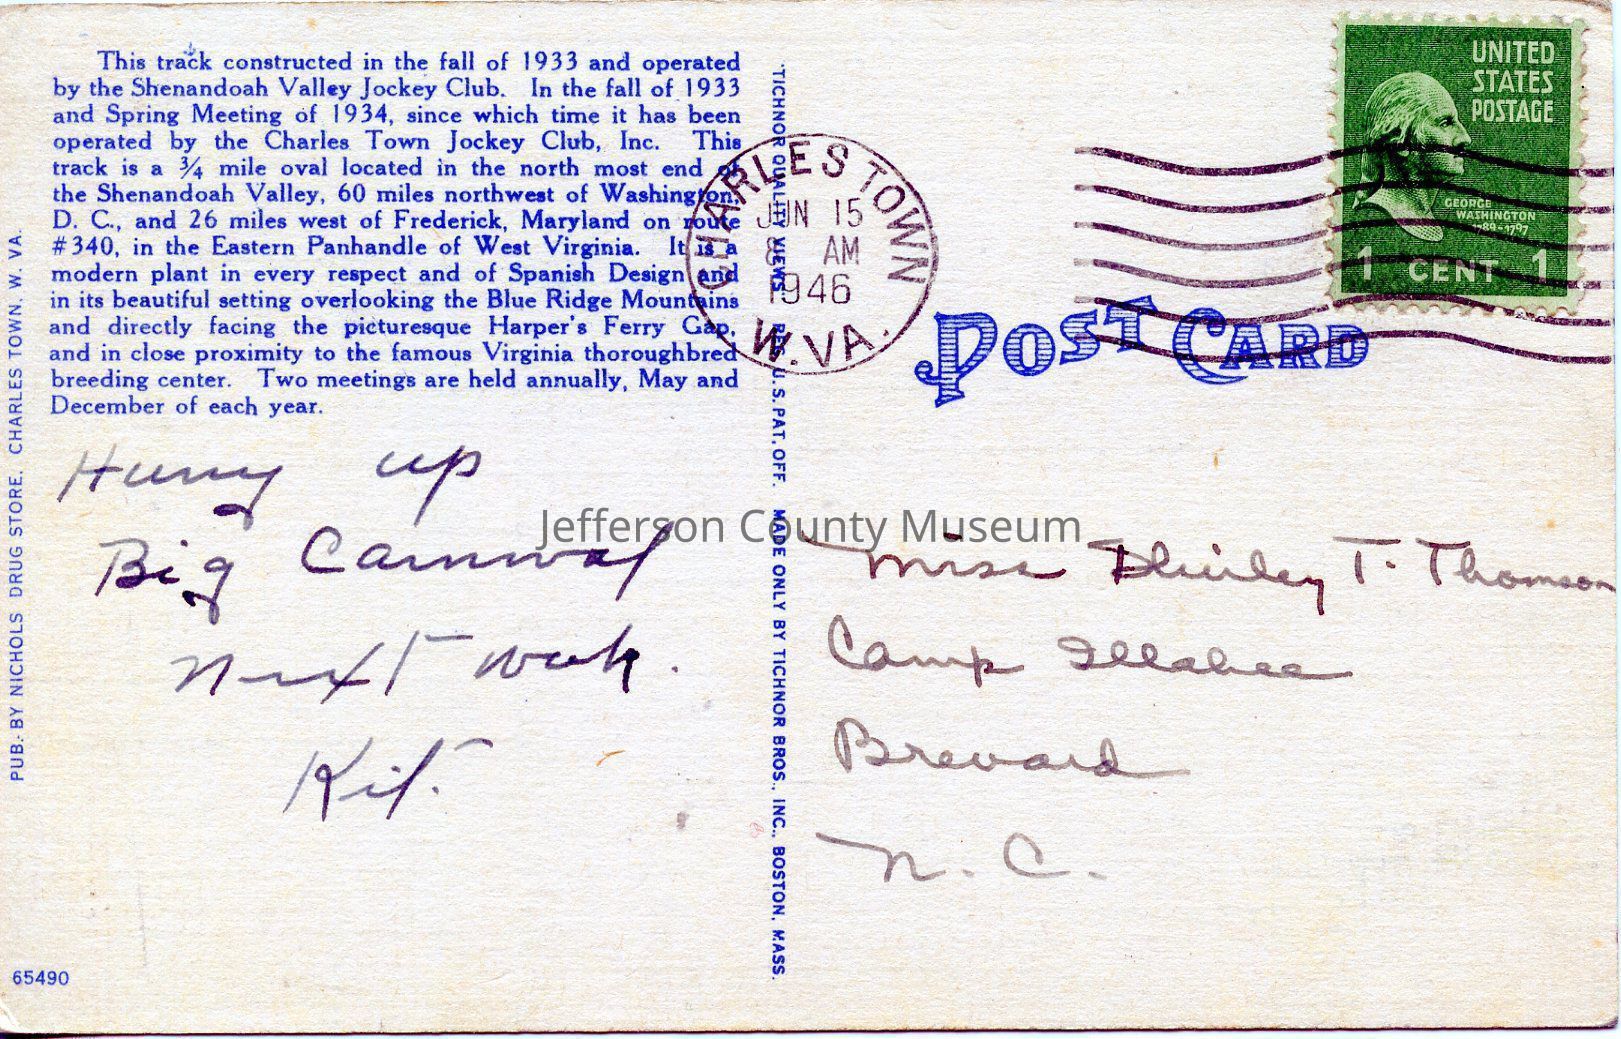 This track constructed in the fall of 1933 and operated
by the Shenandoah Valley Jockey Club. In the fall of 1933
and Spring Meeting of 1934, since which time it has been
operated by the Charles Town Jockey Club, Inc. This
track is a ¾ mile oval located in the north most end of
the Shenandoah Valley, 60 miles northwest of Washington,
D. C., and 26 miles west of Frederick, Maryland on route
#340, in the Eastern Panhandle of West Virginia. It is a
modern plant in every respect and of Spanish Design and
in its beautiful setting overlooking the Blue Ridge Mountains
and directly facing the picturesque Harper's Ferry Gap,
and in close proximity to the famous Virginia thoroughbred
breeding center. Two meetings are held annually, May and
December of each year.
Hurry up
Big Carnival
Next week.
Kit.
PUB. BY NICHOLS DRUG STORE. CHARLES TOWN. W. VA.
65490
"TICHNOR QUALITY VIEWS" REG. U.S. PAT. OFF. MADE ONLY BY TICHNOR BROS., INC., BOSTON, MASS.
CHARLES TOWN
JUN 15
8 AM
1946
W. VA.
UNITED
STATES
POSTAGE
GEORGE
WASHINGTON
1789-1797
1 CENT 1
POST CARD
Jefferson County Museum
Miss Shirley T. Thomson
Camp Illahee
Brevard
N. C.